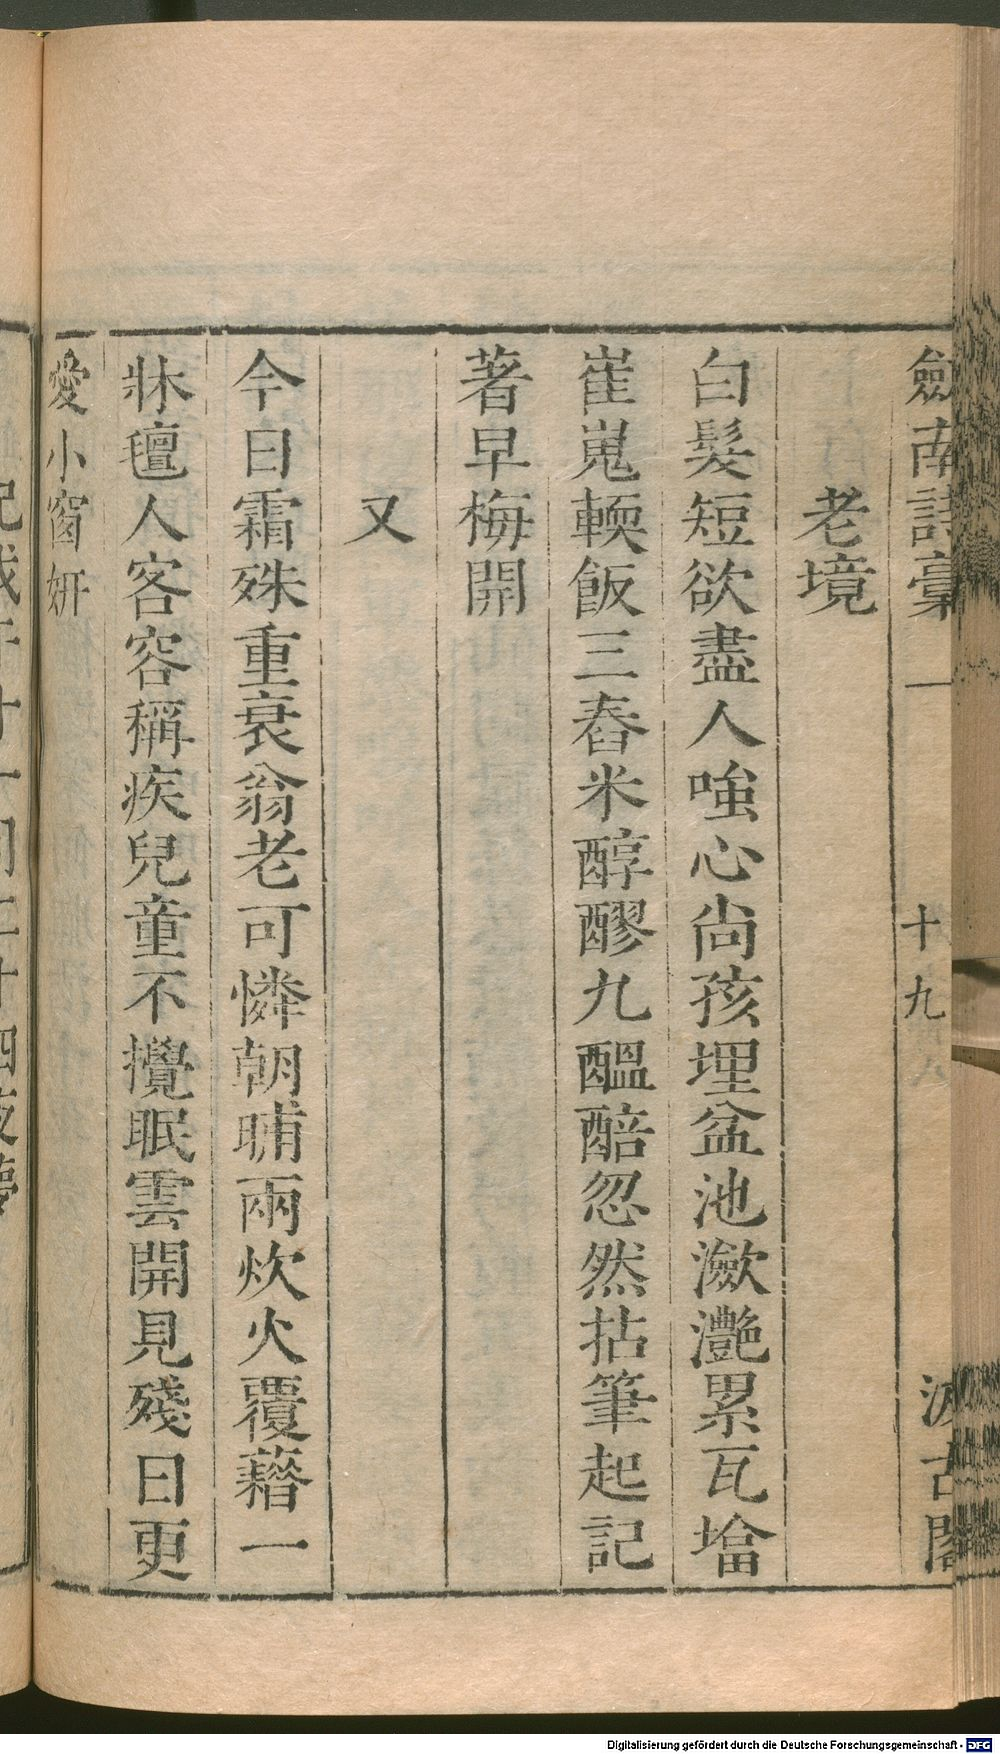 劒南詩藁 一 十九 汲古閣
老境
白髮短欲盡人嗤心尚孩埋盆池瀲灧累瓦墖
崔嵬輭飯三舂米醇醪九醖醅忽然拈筆起記
著早梅開
又
今日霜殊重衰翁老可憐朝晡兩炊火覆藉一
牀氊人客容稱疾兒童不攪眠雲開見殘日更
愛小窗妍
Digitalisierung gefördert durch die Deutsche Forschungsgemeinschaft - DFG